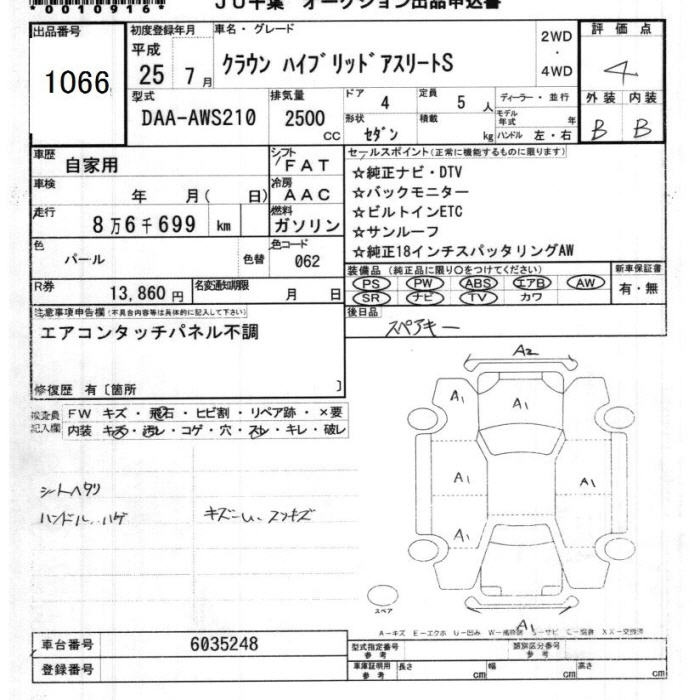 *0010916*
JU千葉 オークション出品申込書
出品番号
1066
初度登録年月
平成
25 7月
車名・グレード
クラウン ハイブリッドアスリートS
2WD
・
4WD
評価点
4
外装 内装
B B
型式
DAA-AWS210
排気量
2500
CC
ドア
4
定員
5人
ディーラー・並行
形状
セダン
積載
kg
モデル年式
年
ハンドル 左・右
車歴
自家用
シフト
FAT
車検
年 月( 日)
冷房
AAC
走行
8万6千699 km
燃料
ガソリン
色
パール
色替
色コード
062
R券
13,860円
名変通知期限
月 日
セールスポイント(正常に機能するものに限ります)
☆純正ナビ・DTV
☆バックモニター
☆ビルトインETC
☆サンルーフ
☆純正18インチスパッタリングAW
装備品(純正品に限り○をつけてください)
PS PW ABS エアB AW
SR ナビ TV カワ
新車保証書
有・無
後日品
スペアキー
注意事項申告欄(不具合内容等は具体的に記入して下さい)
エアコンタッチパネル不調
修復歴 有〔箇所 〕
検査員記入欄
FW キズ・飛石・ヒビ割・リペア跡・×要
内装 キズ・汚レ・コゲ・穴・スレ・キレ・破レ
シートヘタリ
ハンドル、ハゲ
A2
A1
A1
A1
A1
A1
A1
スペア
A-キズ E-エクボ U-凹み W-補修跡 S-サビ C-腐食 XX-交換済
車台番号
6035248
登録番号
型式指定番号
参考
類別区分番号
参考
車庫証明用
参考
長さ cm
幅 cm
高さ cm